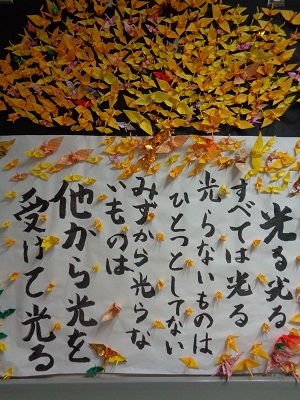 光る光る
すべては光る
光らないものは
ひとつとしてない
みずから光らな
いものは
他から光を
受けて光る